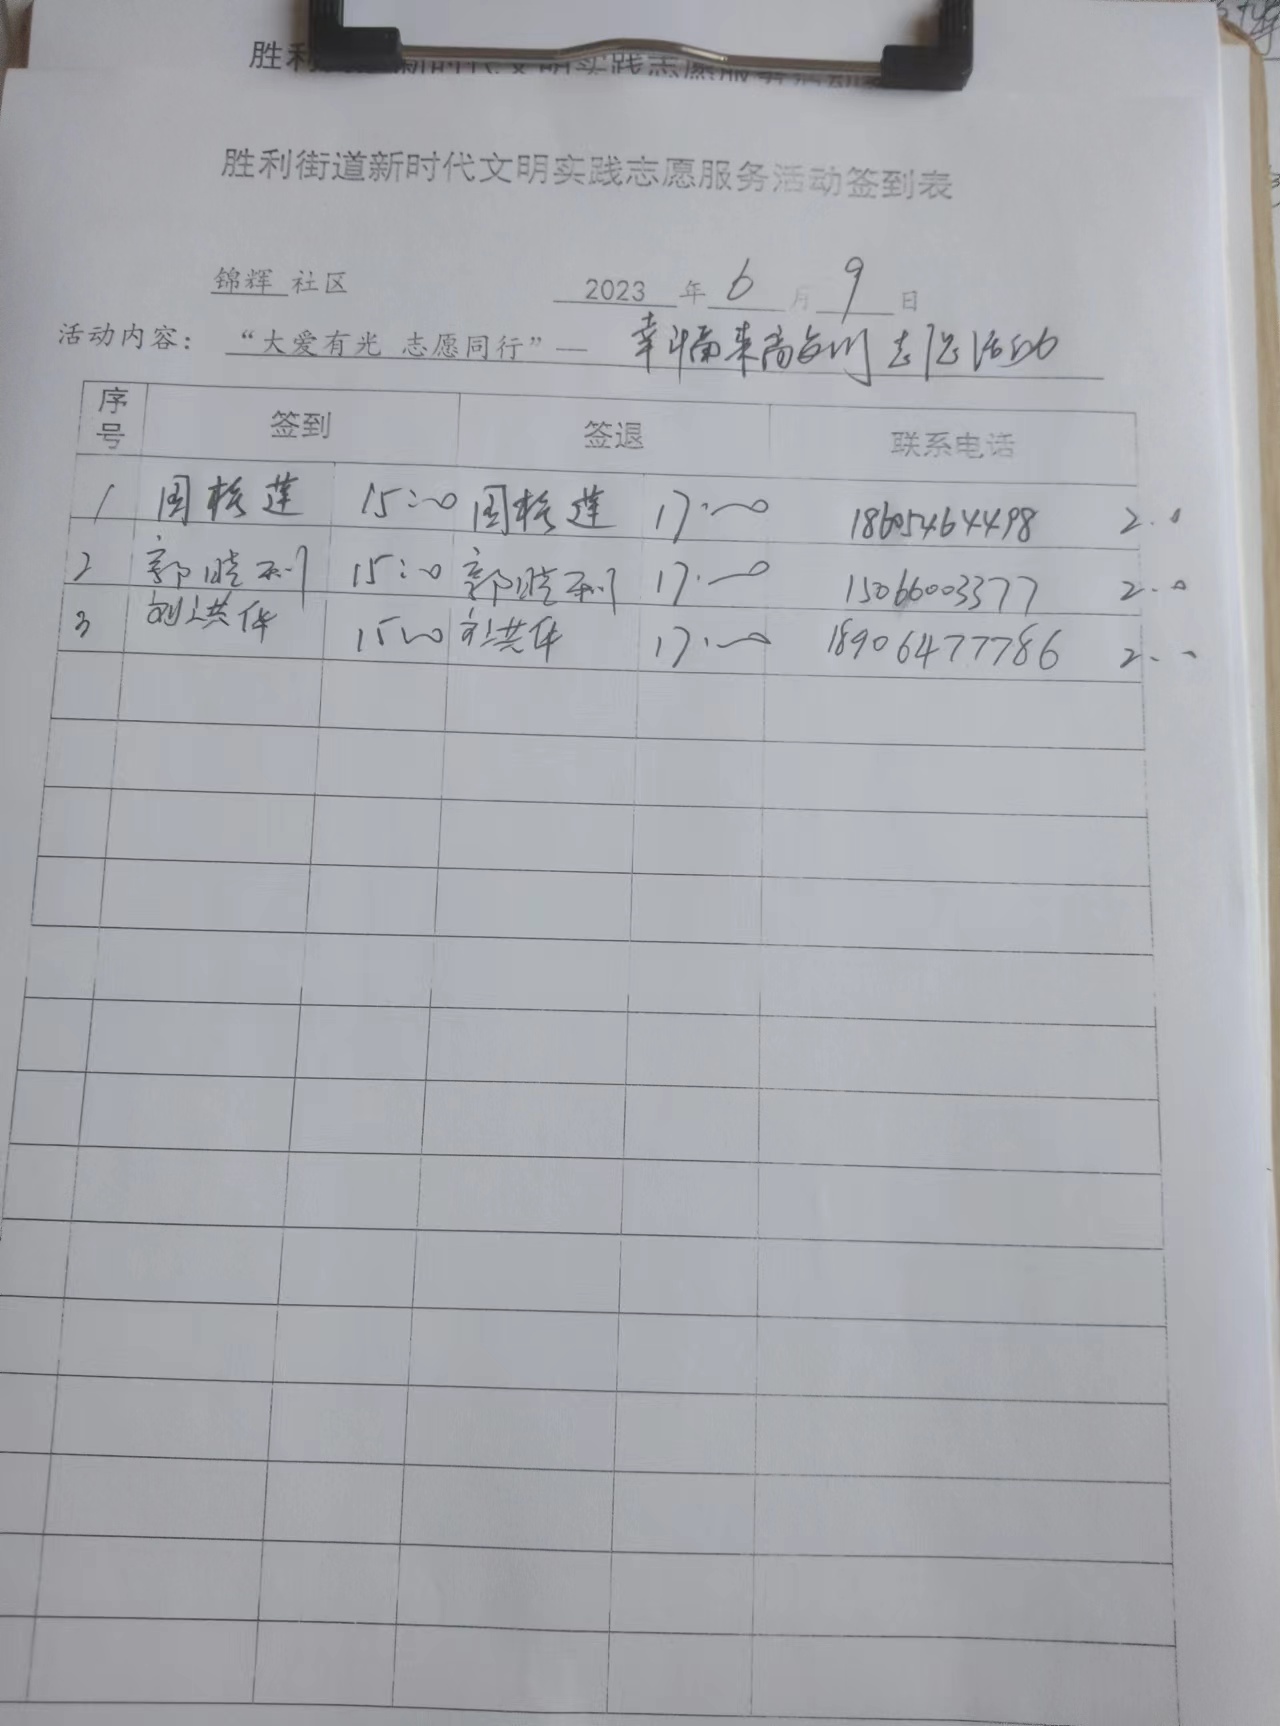 胜利街道新时代文明实践志愿服务活动签到表
锦辉 社区 2023 年 6 月 9 日
活动内容: “大爱有光 志愿同行”— 幸福来 志愿活动
序号 签到 签退 联系电话
1 周 莲 15:00 周 莲 17:00 18605464498 2.0
2 郭晓 15:00 郭晓 17:00 15066003377 2.0
3 刘洪华 15:00 刘洪华 17:00 18906477786 2.0